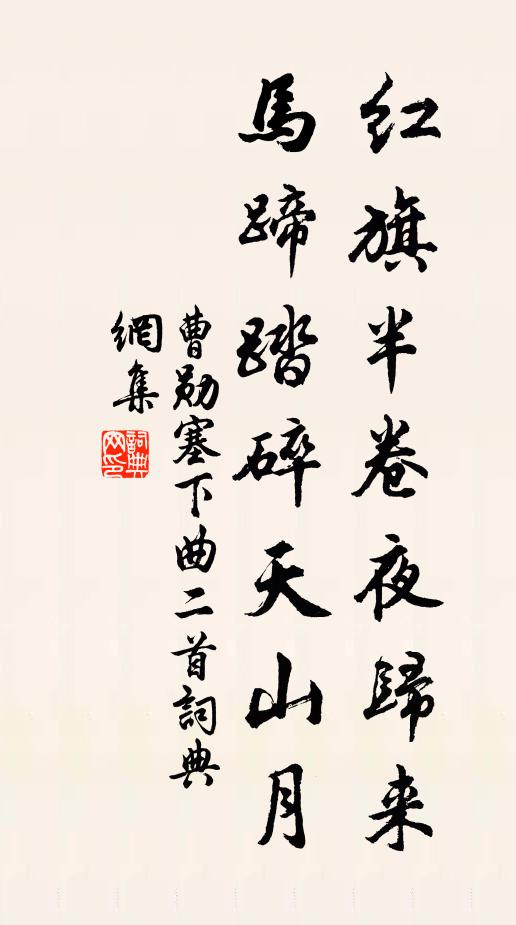 红旗半卷夜歸来
馬蹄踏碎天山月
曹勛塞下曲二首詞典
網集
詞典
网印